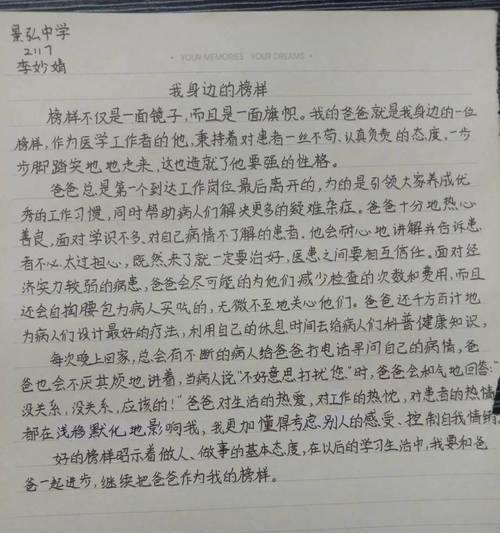 景弘中学
2117
李妙婧
· YOUR MEMORIES YOUR DREAMS ·
我身边的榜样
榜样不仅是一面镜子,而且是一面旗帜。我的爸爸就是我身边的一位
榜样,作为医学工作者的他,秉持着对患者一丝不苟、认真负责的态度,一步
步脚踏实地地走来,这也造就了他要强的性格。
爸爸总是第一个到达工作岗位最后离开的,为的是引领大家养成优
秀的工作习惯,同时帮助病人们解决更多的疑难杂症。爸爸十分地热心
善良,面对学识不多、对自己病情不了解的患者,他会耐心地讲解并告诉患
者不必太过担心,既然来了就一定要治好,医患之间要相互信任。面对经
济实力较弱的病患,爸爸会尽可能的为他们减少检查的次数和费用,而且
还会自掏腰包为病人买吃的,无微不至地关心他们。爸爸还千方百计地
为病人们设计最好的疗法,利用自己的休息时间去给病人们科普健康知识,
每次晚上回家,总会有不断的病人给爸爸打电话寻问自己的病情,爸
爸也会不厌其烦地讲着,当病人说“不好意思打扰您”时,爸爸会和气地回答:“
没关系,没关系,应该的!”爸爸对生活的热爱,对工作的热忱,对患者的热情
都在浅移默化地影响我,我更加懂得考虑别人的感受、控制自我情绪
好的榜样昭示着做人、做事的基本态度,在以后的学习生活中,我要和爸
爸一起进步,继续把爸爸作为我的榜样。